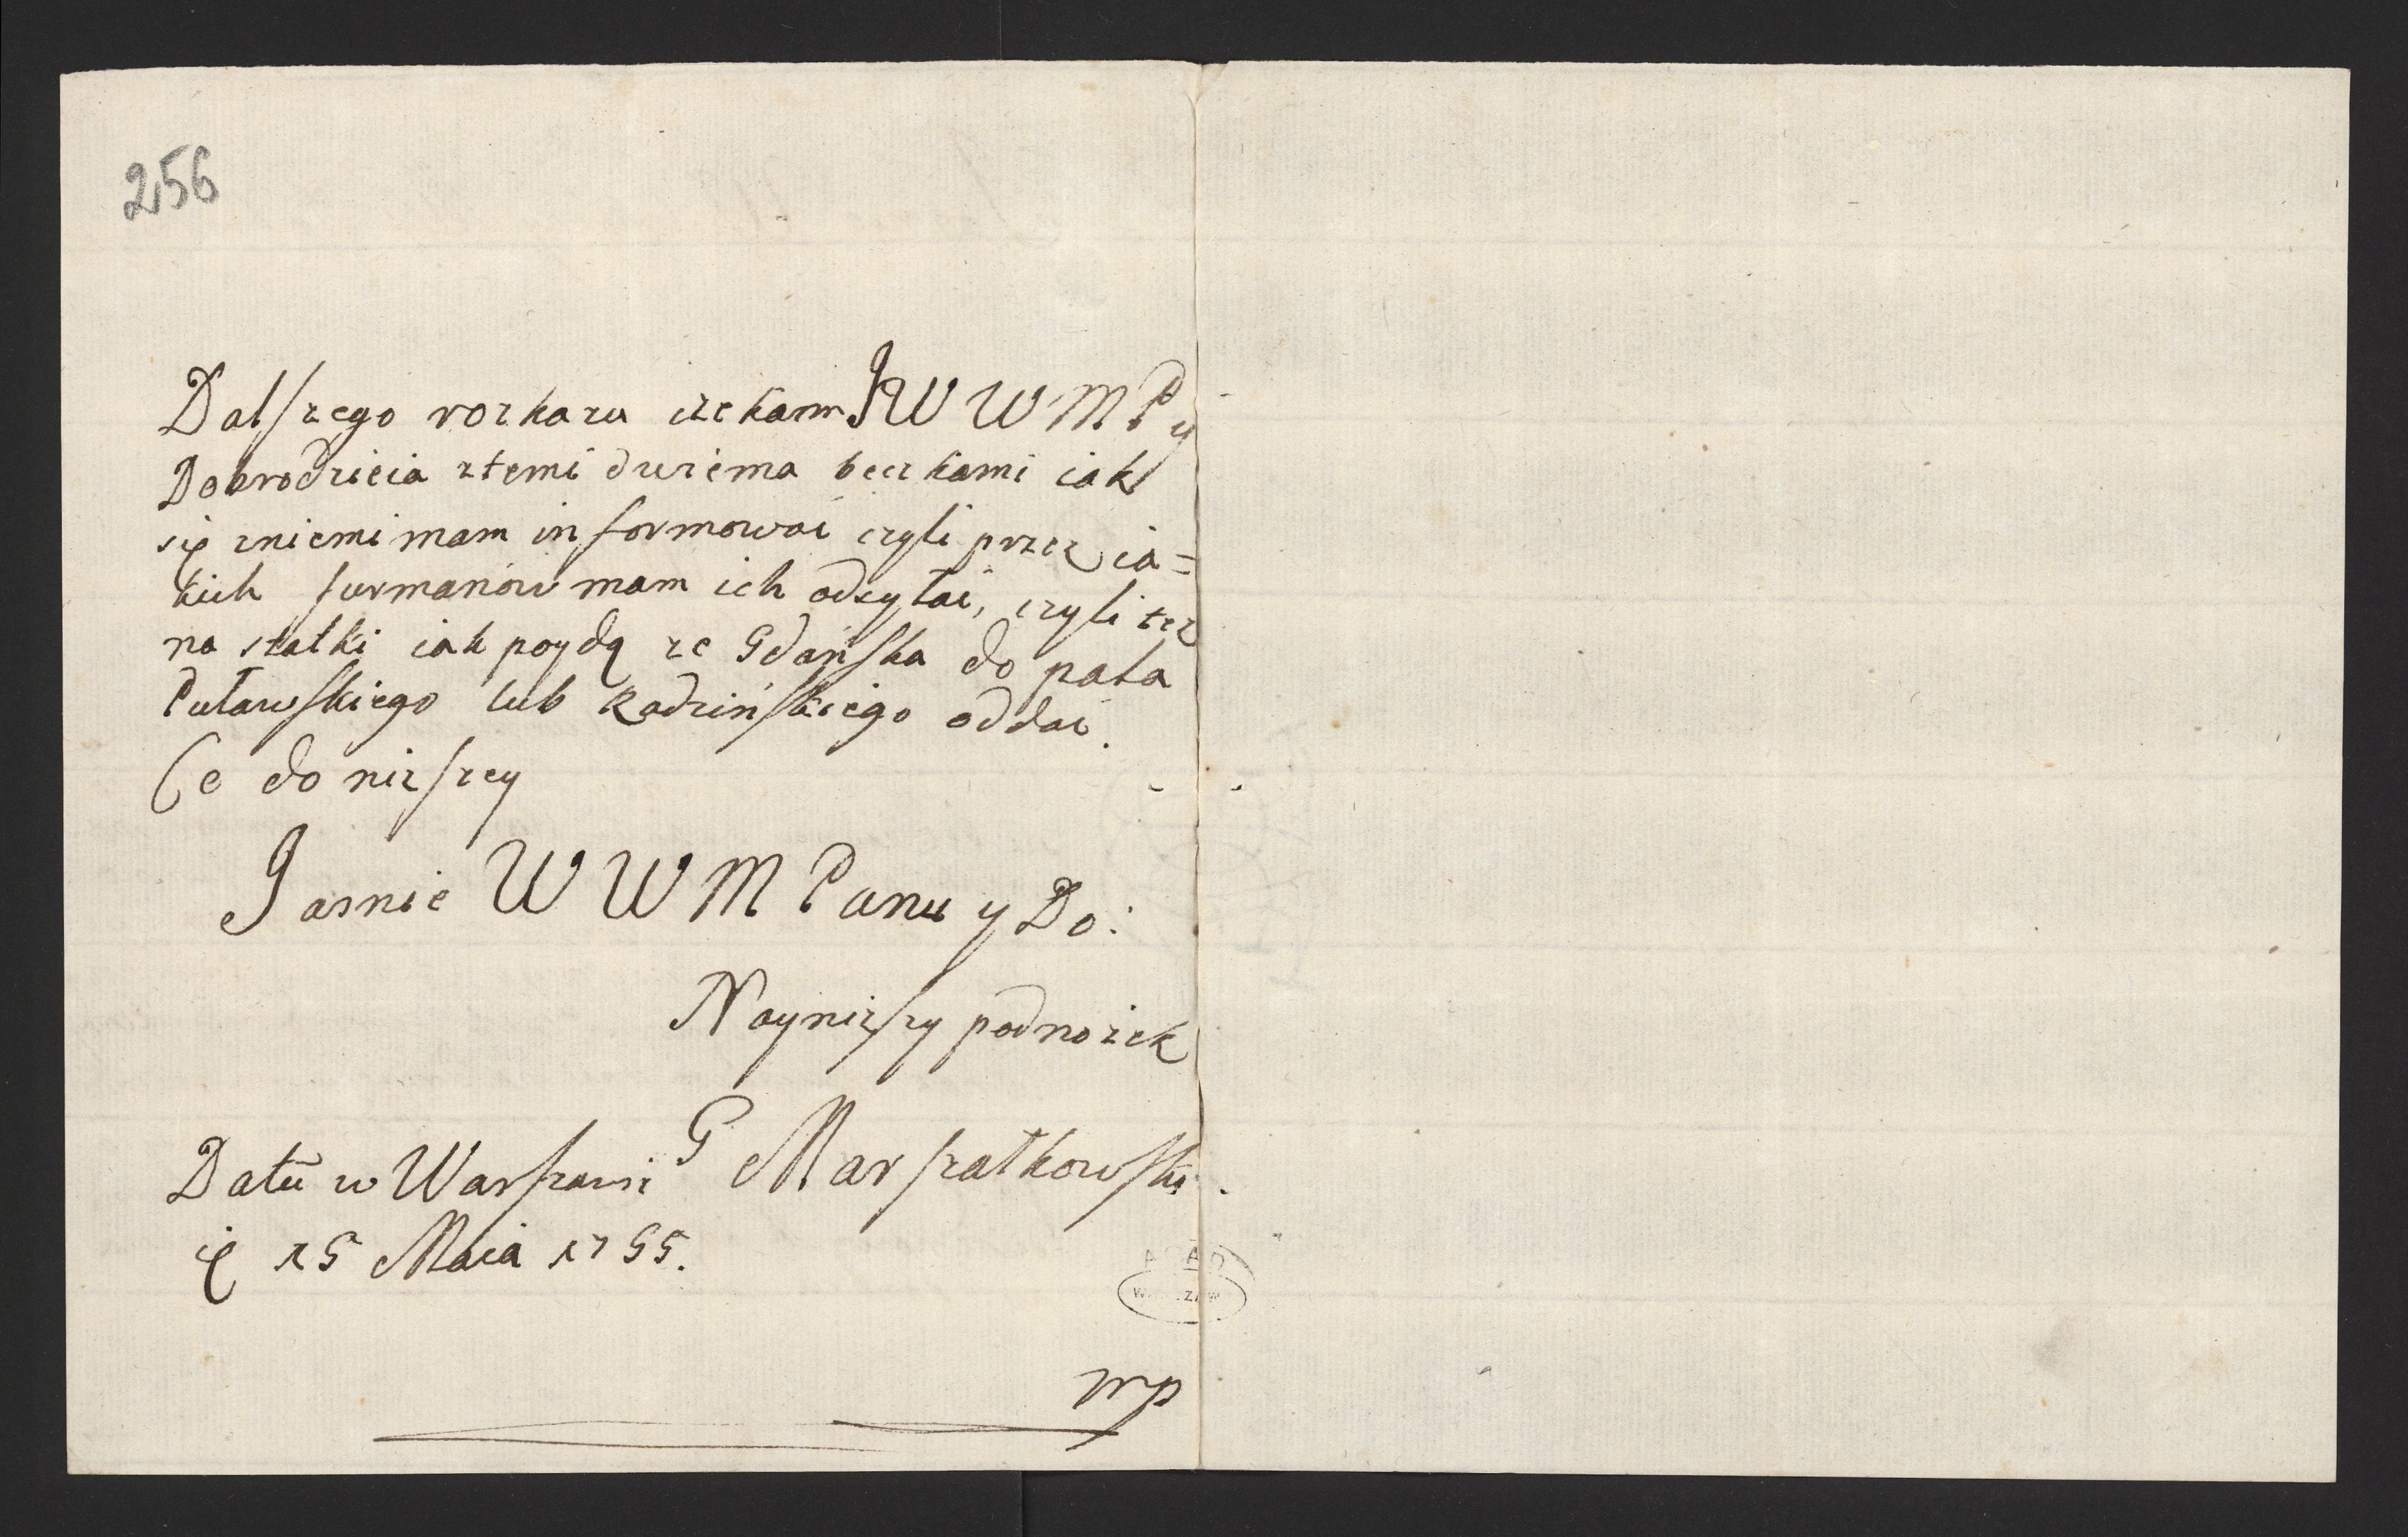 256
Dalszego rozkazu czekam JW W M P y
Dobrodzieia z temi dwiema beczkami iak
się z niemi mam informować czyli przez ia=
kich furmanów mam ich odsyłać, czyli też
na statki iak poydą ze Gdańska do pała
Puławskiego lub Radzińskiego oddać.
Ce do niższey
Jasnie W W M Panu y Do:
Nayniższy podnożek
G Marszałkowski.
Datū w Warszawie
ie 15 Maia 1755.
mp